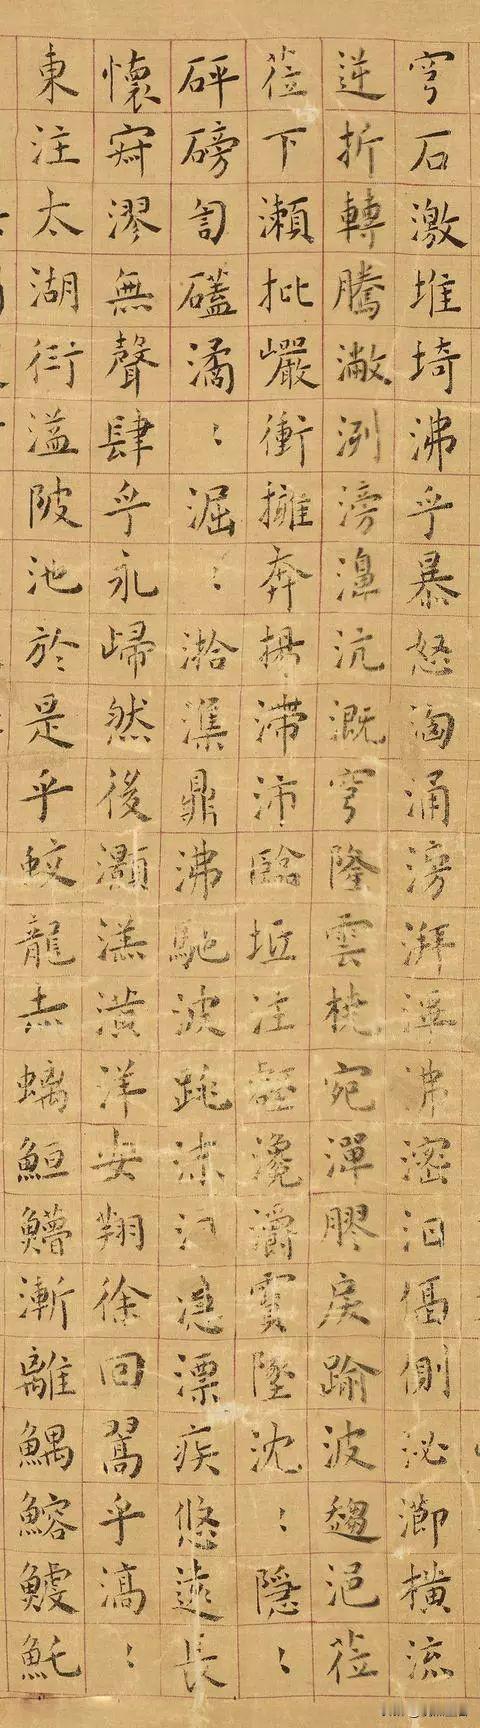 穹石激堆埼沸乎暴怒洶涌滂湃滭沸滵汩偪側泌瀄橫流
逆折轉騰潎洌滂濞沆溉穹隆雲橈宛潬膠戾踰波趨浥莅
莅下瀨批巖衝擁奔揚滯沛臨坻注壑瀺灂霣墜沈:隱:
砰磅訇磕潏:淈:湁潗鼎沸馳波跳沫汩㴔漂疾悠遠長
懷寂漻無聲肆乎永歸然後灝溔潢洋安翔徐回翯乎滈:
東注太湖衍溢陂池於是乎蛟龍赤螭䱭䲛漸離鰅鰫鰬魠